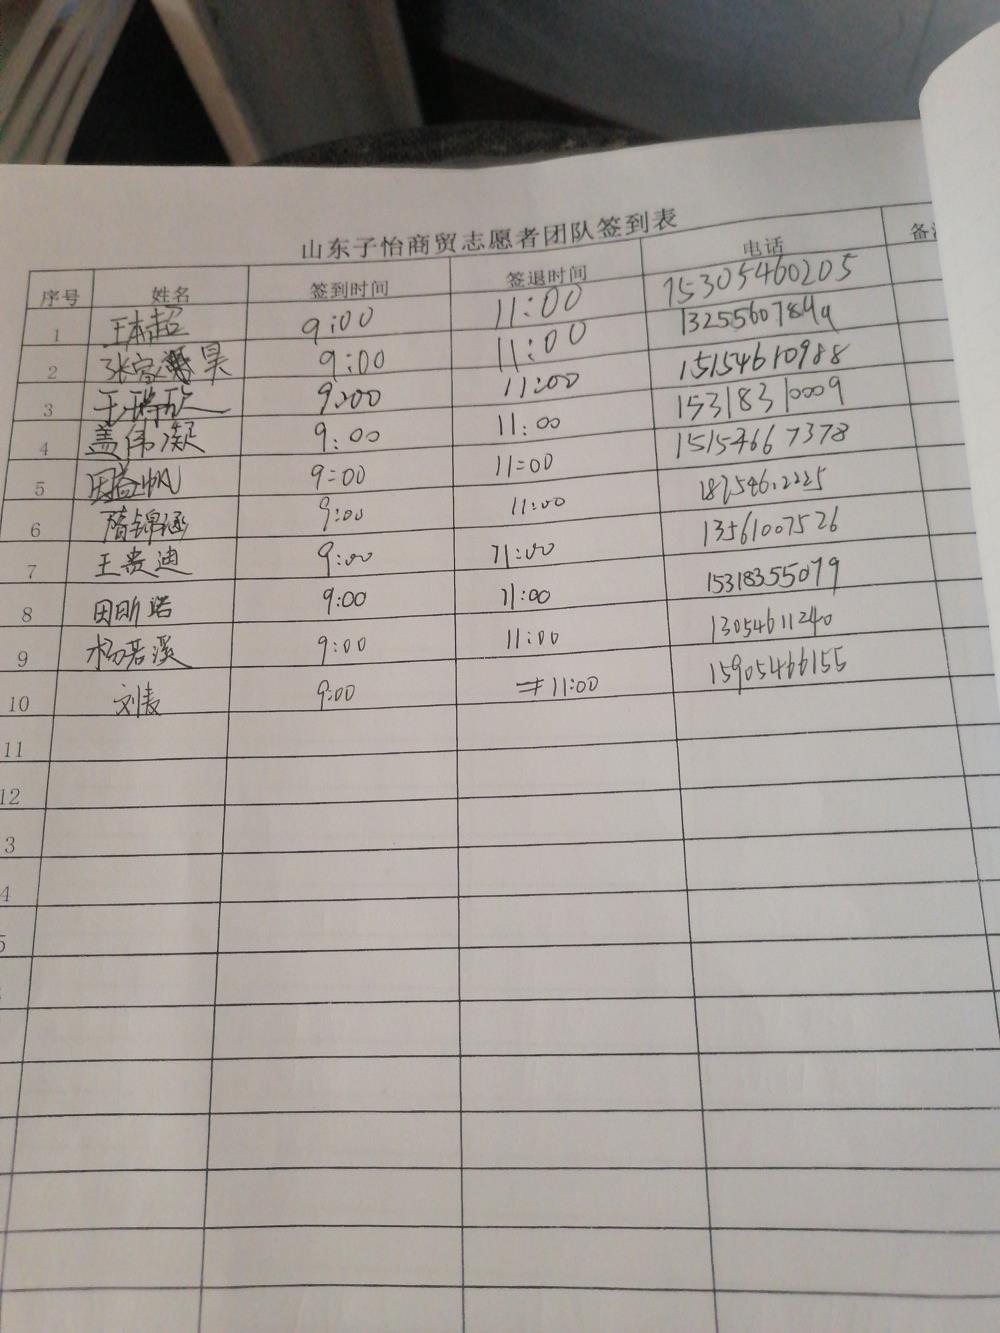 山东子怡商贸志愿者团队签到表
序号 姓名 签到时间 签退时间 电话 备
1 王本超 9:00 11:00 15305460205
2 张家昊 9:00 11:00
3 王瑞欣 9:00 11:00 15154610988
4 盖伟凝 9:00 11:00 15318310009
5 9:00 11:00 15154667378
6 隋锦涵 9:00 11:00
7 王贵迪 9:00 11:00 13561007526
8 田昕诺 9:00 11:00 15318355079
9 杨若溪 9:00 11:00 13054611240
10 刘 9:00 11:00 15905466155
11
12
3
4
5